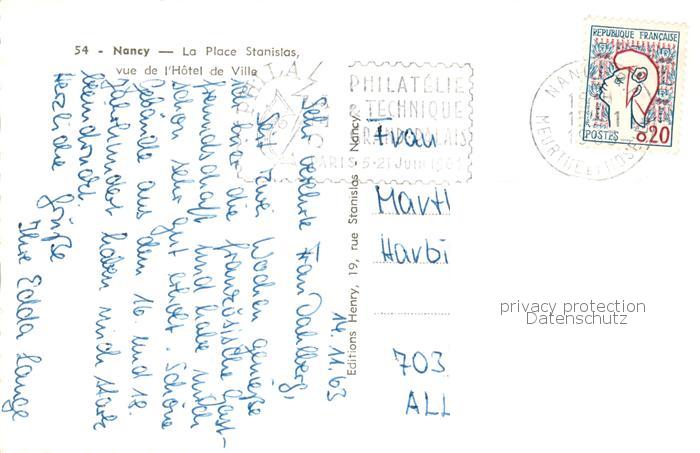 54 - Nancy — La Place Stanislas,
vue de l'Hôtel de Ville
14.11.63
Sehr verehrte Frau Dahlberg,
Seit zwei Wochen genieße
ich hier die französische Gast-
freundschaft und habe mich
schon sehr gut erholt. Schöne
Gebäude aus dem 16. und 18.
Jahrhundert haben mich stark
beeindruckt.
Herzliche Grüße
Ihre Edda Lange
Editions Henry, 19, rue Stanislas Nancy
PHILATÉLIE
& TECHNIQUE
PARIS 5-21 Juin 1964
NAN
MEURTHE-ET-MOSELLE
REPUBLIQUE FRANÇAISE
POSTES 0,20
Frau
Marth
Harbi
703
ALL
privacy protection
Datenschutz